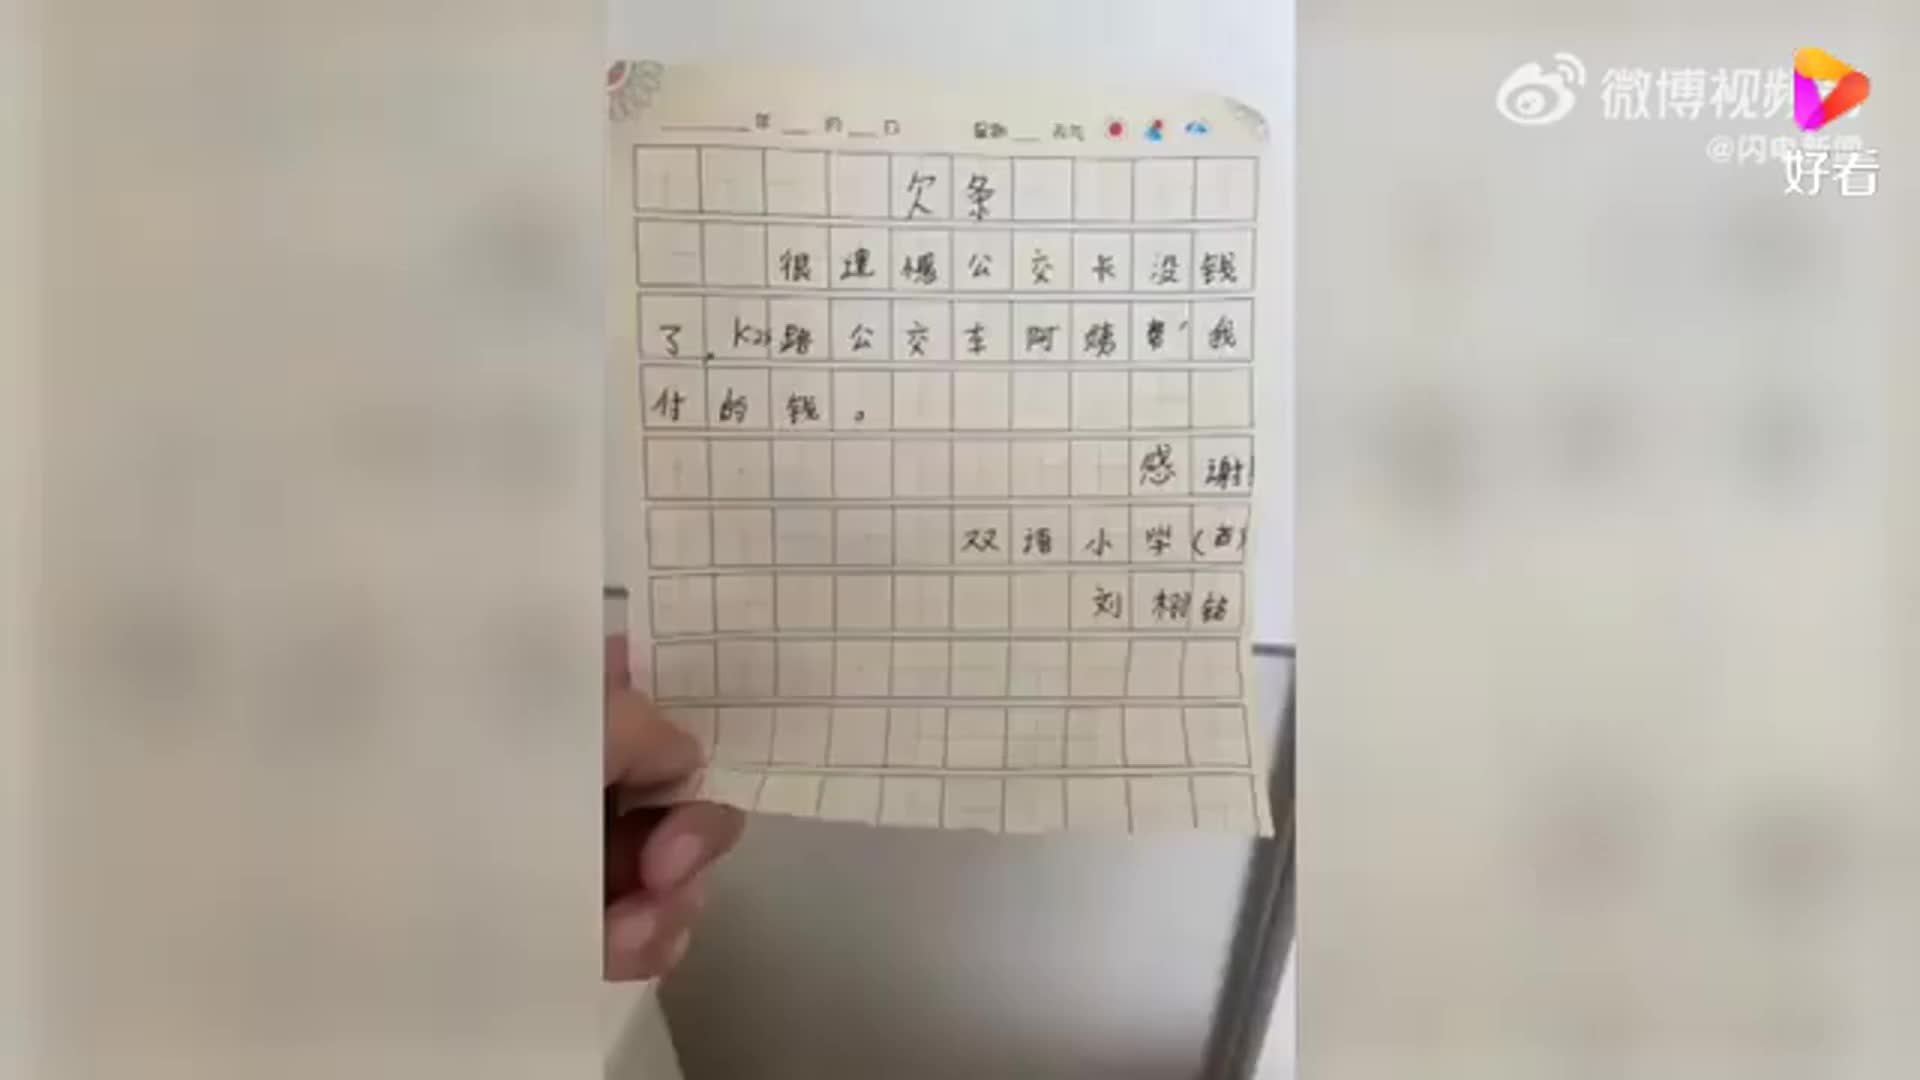 微博视频
@闪电新闻
好看
年 月 日 星期 天气
欠条
很遗憾公交卡没钱
了，K25路公交车阿姨帮我
付的钱。
感谢!
双语小学
刘